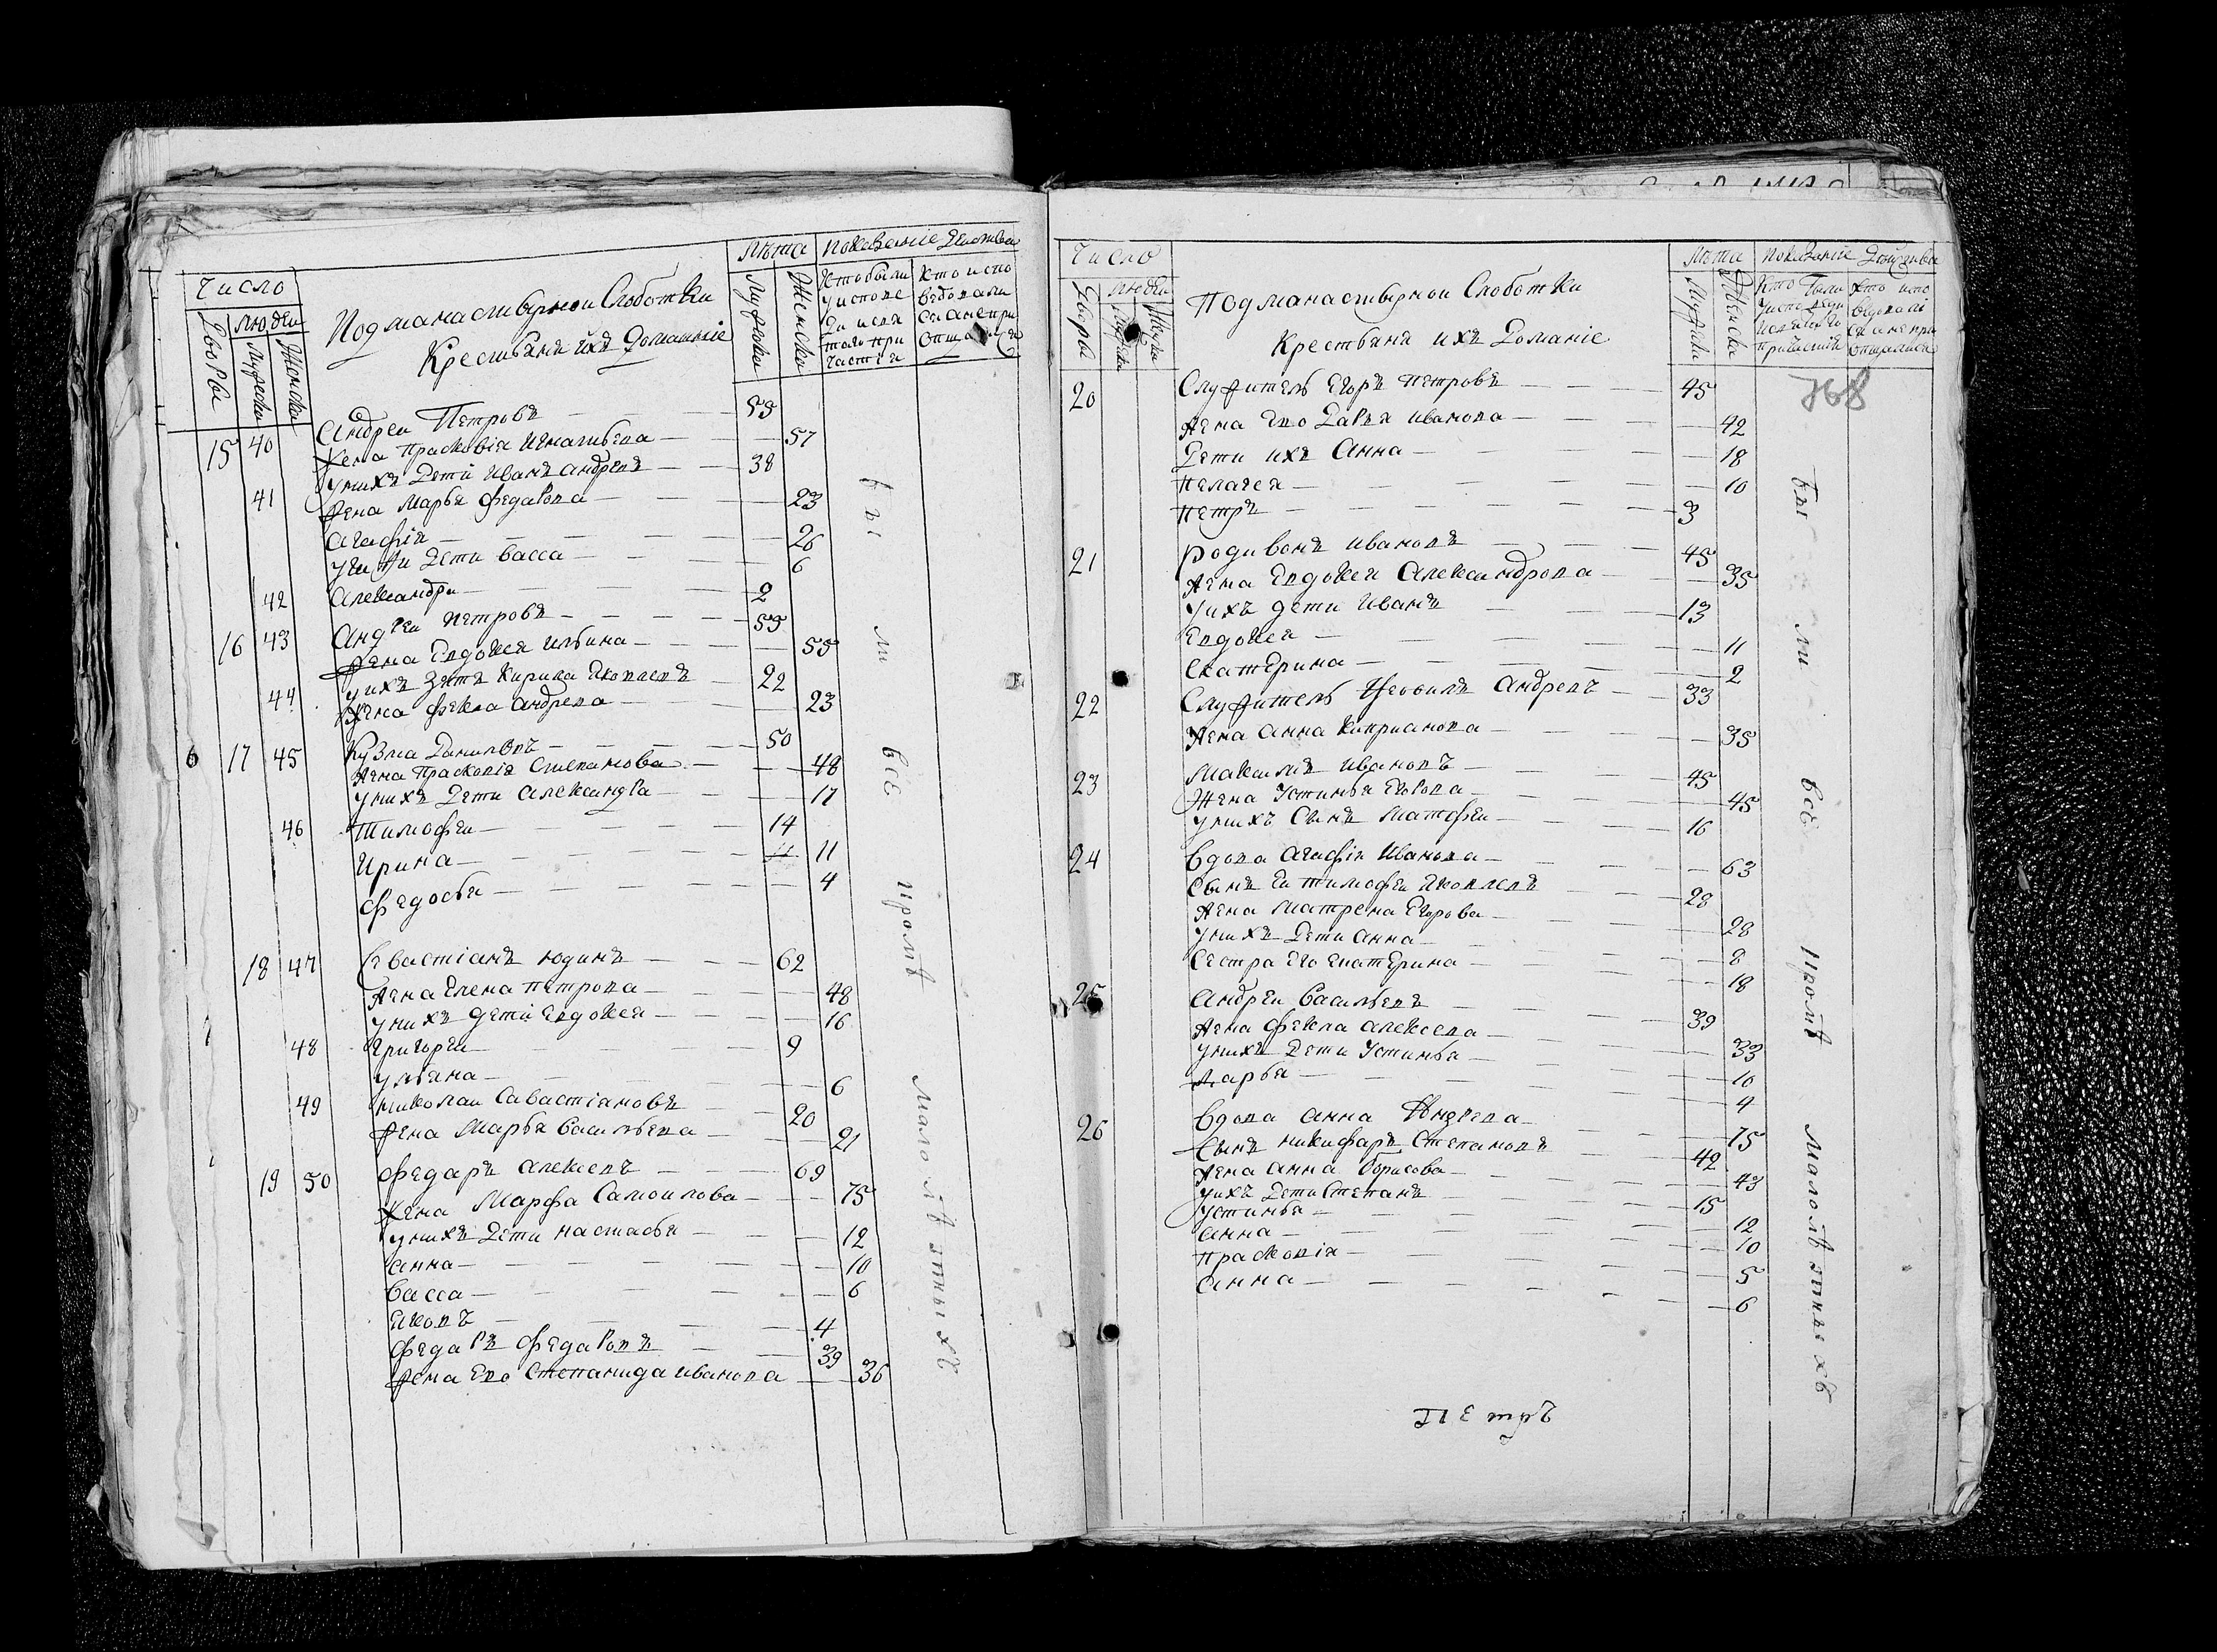 Число
Дворы
Людеи
Мужеска
Женска
Подманастырнои Слоботки
Крестьяня ихъ Домашнїе
Лѣта
Мужеска
Женска
Показание Действа
Кто были
у исповѣ
ди и свя
таго при
частїя
Кто испо
ведовали
ся а не при
15 40 Андреи Петровъ 59
Жена Прасковїя Игнатьева 57
41 у нихъ Дети Иванъ Андреевъ 38
Жена Марья Федарова 23
Агафїя 26
Дети Васса 6
42 Александръ 2
16 43 Андреи Петровъ 59
Жена Евдокея Ильина 55
44 у нихъ Зять Кирила Яковлевъ 22
Жена Фекла Андрева 23
6 17 45 Кузма Даниловъ 50
Жена Прасковїя Степанова 48
у нихъ Дети Александра 17
46 Тимофеи 14
Ирина 11 11
Федосья 4
18 47 Севастїанъ Юдинъ 62
Жена Елена Петрова 48
у нихъ Дети Евдокея 16
48 Григореи 9
Ульяна 6
49 Николаи Савастїяновъ 20
Жена Марья Васильева 21
19 50 Федаръ Алексевъ 69
Жена Марфа Самоилова 75
у нихъ Дети Настасья 12
Анна 10
Васса 6
Яковъ 4
Федаръ Федаровъ 39
Жена Ево Степанида Иванова 36
бы ли всѣ кромѣ малолѣтныхъ
Число
Дворы
Людеи
Мужеска
Женска
Подманастырнои Слоботки
Крестьяня ихъ Доманїе
Лѣта
Мужеска
Женска
Показание Действа
Кто были
Кто испо
ведовалї
ся а не при
768
20 Служитель Егоръ Петровъ 45
Жена Ево Дарья Иванова 42
Дети ихъ Анна 18
Пелагея 10
Петръ 3
21 Родивонъ Ивановъ 45
Жена Евдокея Александрова 35
У ихъ дети Иванъ 13
Евдокея 11
Екатерина 2
22 Служитель Андревъ 33
Жена Анна Киприанова 35
23 Максимъ Ивановъ 45
Жена Устинья Егорова 45
у нихъ Сынъ Матфеи 16
24 Вдова Агафїя Иванова 63
Сынъ Еи Тимофеи Яковлевъ 28
Жена Матрена Егорова 28
у нихъ Дети Анна 8
Сестра Его Екатерина 18
25 Андреи Васильевъ 39
Жена Фекла Алексева 33
у нихъ Дети Устинья 10
Марья 4
26 Вдова Анна Андрева 75
Сынъ Никифаръ Степановъ 42
Жена Анна Борисова 43
У ихъ Дети Степанъ 15
Устинья 12
Анна 10
Прасковїя 5
Анна 6
бы ли всѣ кромѣ малолѣтныхъ
Петръ